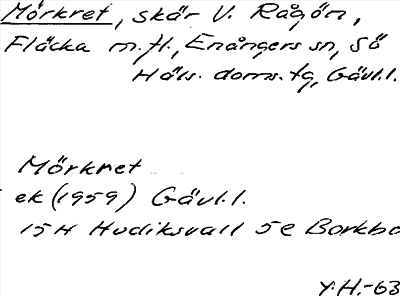 Mörkret, skär V. Rågön,
Fläcka m.fl., Enångers sn, Sö
Häls. doms. tg, Gävl.l.
Mörkret
ek (1959) Gävl.l.
15H Hudiksvall 5e Borkbo
Y.H.-63